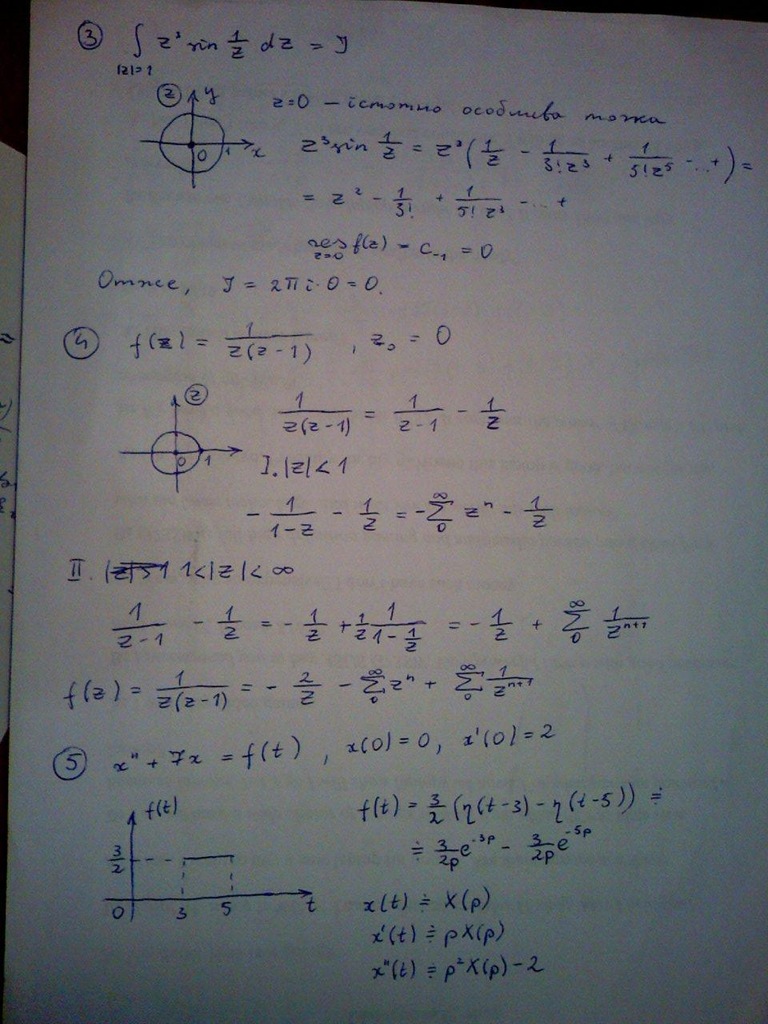 ③ ∫ z³ sin 1/z dz = J
|z|=1
ⓩ y
z=0 – істотно особлива точка
0 1 x
z³ sin 1/z = z³ (1/z - 1/3!z³ + 1/5!z⁵ - ... +) =
= z² - 1/3! + 1/5!z³ - ... +
res f(z) = C₋₁ = 0
z=0
Отже, J = 2πi·0 = 0.
④ f(z) = 1/z(z-1) , z₀ = 0
ⓩ
0 1
1/z(z-1) = 1/z-1 - 1/z
I. |z|<1
- 1/1-z - 1/z = -∑₀^∞ zⁿ - 1/z
II. 1<|z|<∞
1/z-1 - 1/z = - 1/z + 1/z 1/1-1/z = - 1/z + ∑₀^∞ 1/zⁿ⁺¹
f(z) = 1/z(z-1) = - 2/z - ∑₀^∞ zⁿ + ∑₀^∞ 1/zⁿ⁺¹
⑤ x" + 7x = f(t) , x(0)=0, x'(0)=2
f(t)
3/2
0 3 5 t
f(t) = 3/2 (η(t-3) - η(t-5)) ≓
≓ 3/2p e^-3p - 3/2p e^-5p
x(t) ≓ X(p)
x'(t) ≓ pX(p)
x"(t) ≓ p²X(p)-2